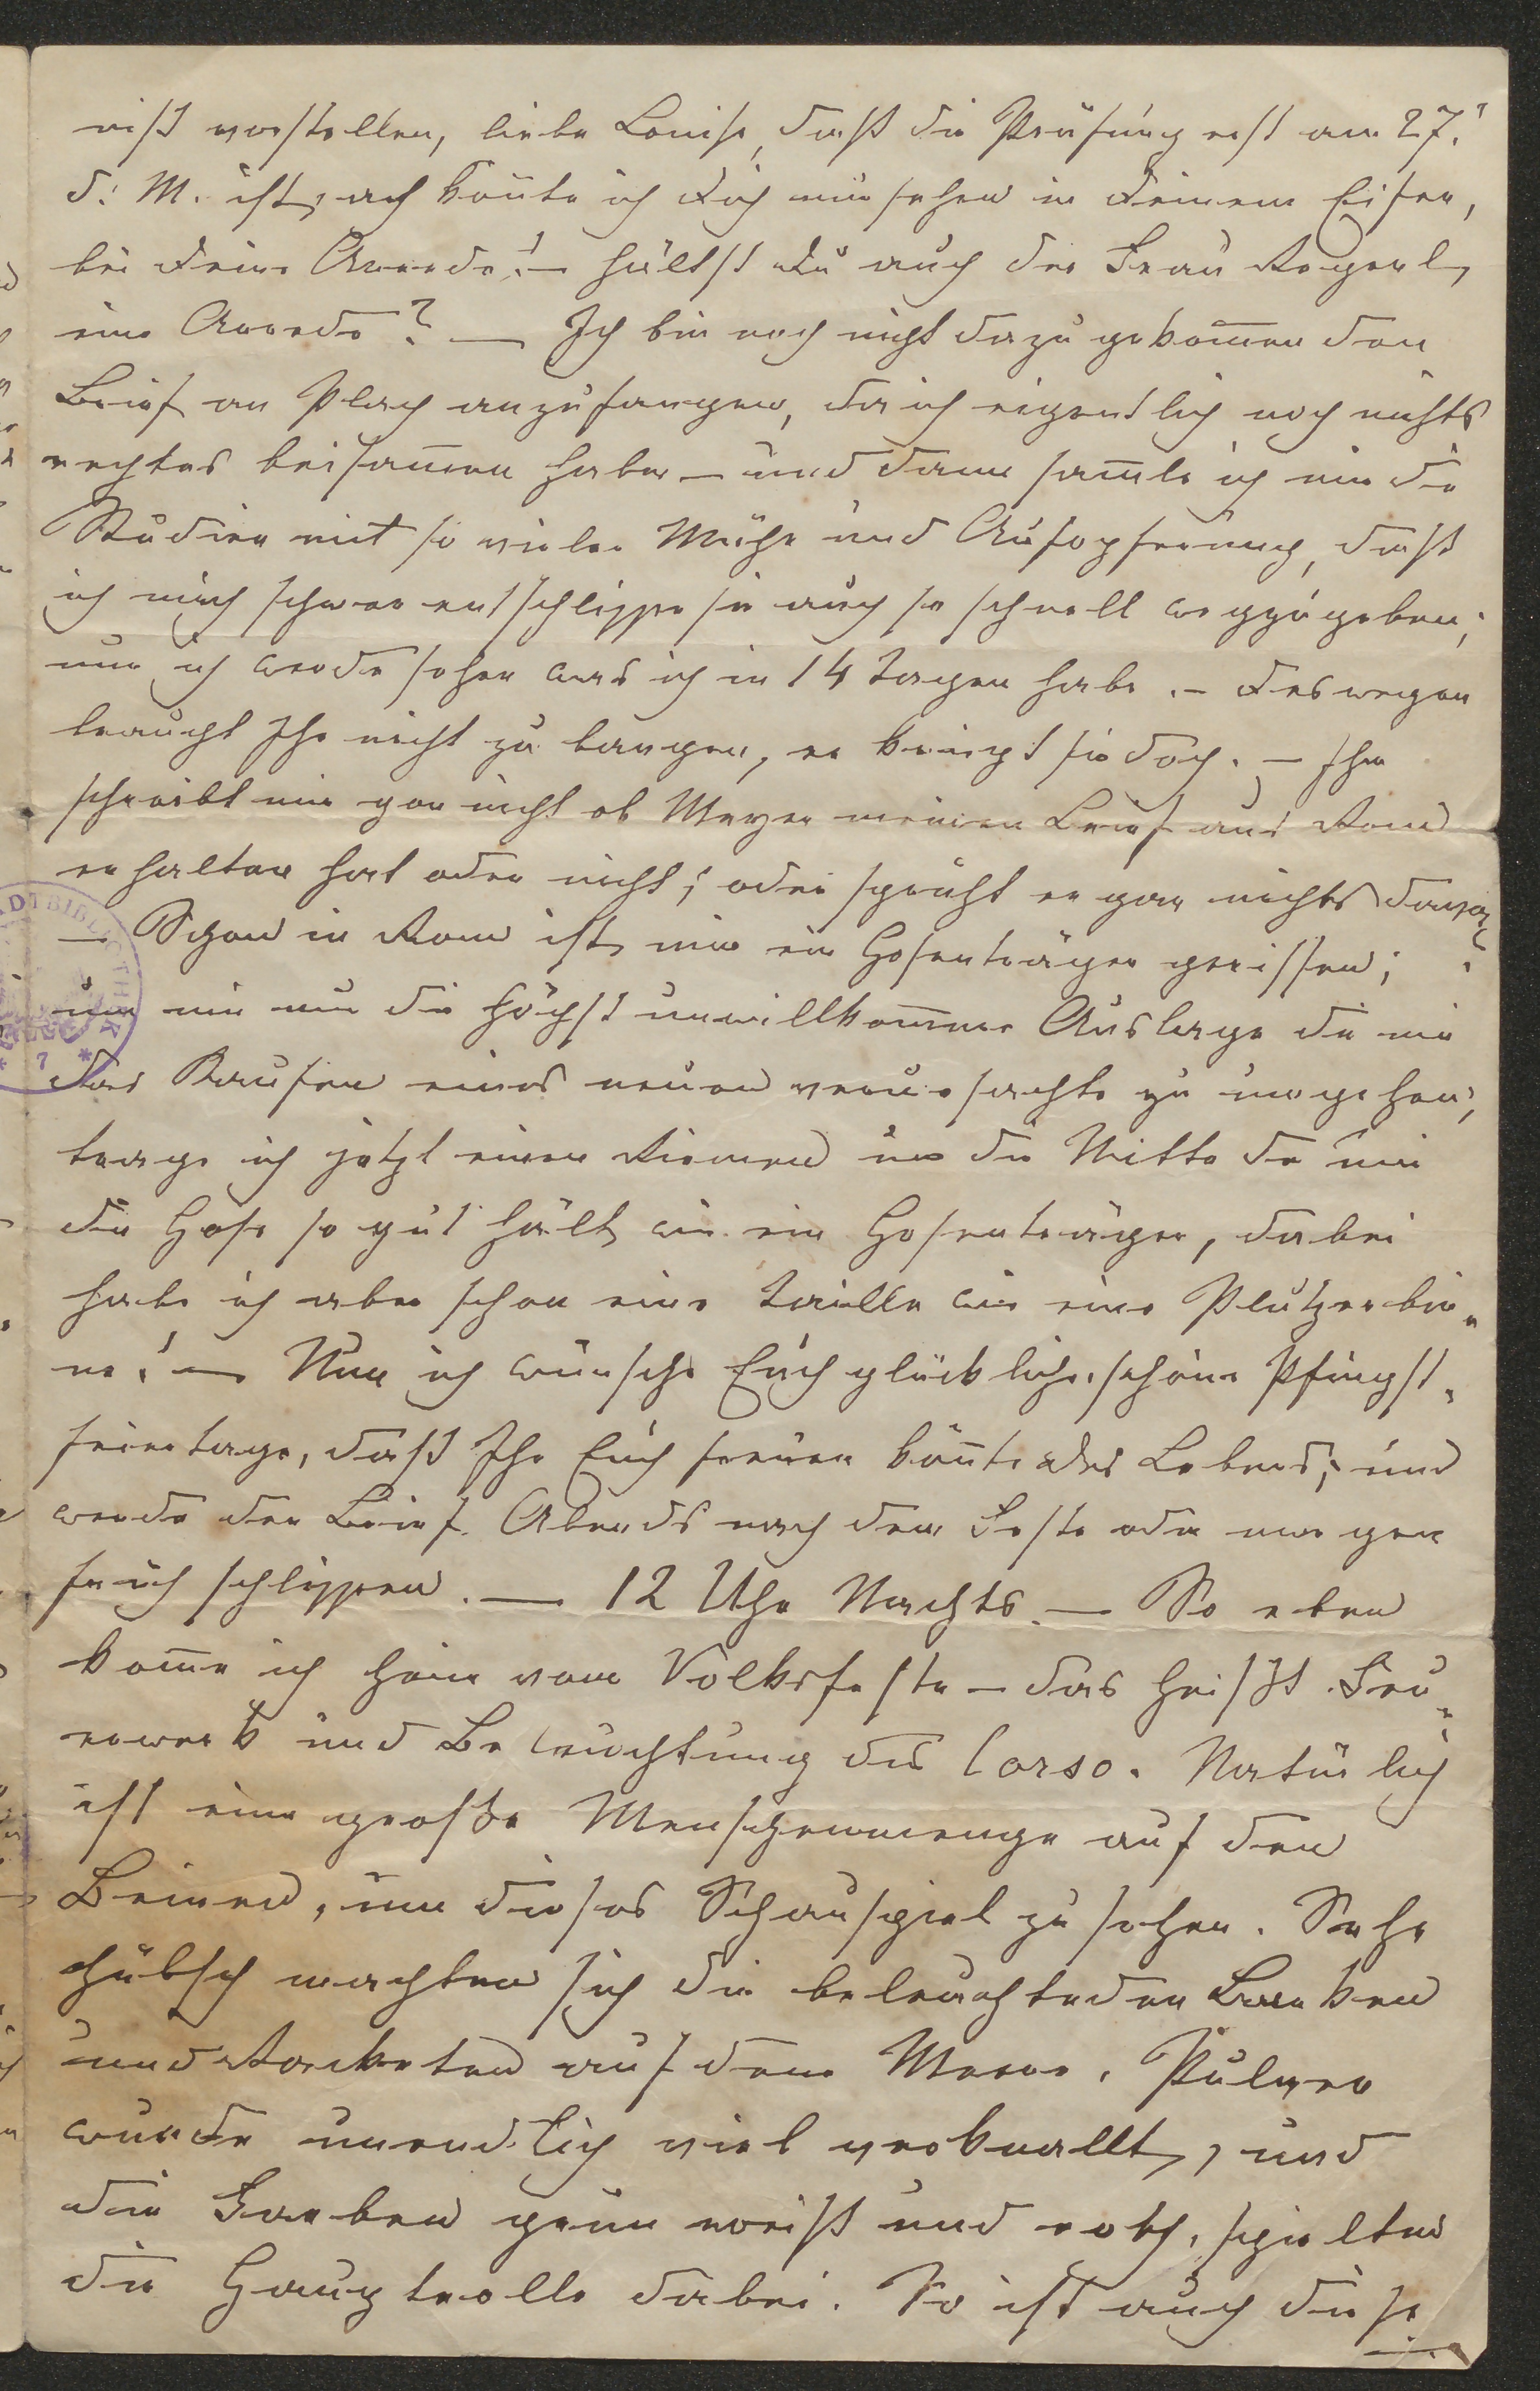 nist vorstellen, liebe Louise, daß die Prüfung erst am 27.
d. M. ist, ach könnte ich Dich nur sehen in Deinem Eifer,
bei Deine Anrede! – hältst Du auch der Frau
eine Anrede? — Ich bin noch nicht dazu gekom̅en den
Brief an Plach anzufangen, da ich eigentlich noch nichts
rechtes beisam̅en habe – und dann sam̅le ich mir die
Studien mit so vieler Mühe und Aufopferung, daß
ich mich schwer entschließe sie auch so schnell wegzugeben;
nun ich werde sehen was ich in 14 Tagen habe. – Deswegen
braucht Ihr nicht zu bangen, er kriegt sie doch. – Ihr
schreibt mir gar nicht ob Mayer meinen Brief aus Rom
erhalten hat oder nicht; oder spricht er gar nichts davon?
– Schon in Rom ist mir ein Hosenträger gerissen;
um mir nun die höchst unwillkom̅ene Auslage die mir
das Kaufen eines neuen verursachte zu umgehen,
trage ich jetzt einen Riemen um die Mitte der mir
die Hose so gut hält wie ein Hosenträger, dabei
habe ich aber schon eine Taille wie eine Plutzerbir-
ne! — Nun ich wünsche Euch glückliche, schöne Pfingst-
feiertage, daß Ihr Euch freuen kön̅t des Lebens; und
werde den Brief Abends nach dem Feste oder morgen
früh schließen. — 12 Uhr Nachts. — So eben
kom̅e ich heim vom Volksfeste – das heißt Feu-
erwerk und Beleuchtung des Corso. Natürlich
ist eine große Menschenmenge auf den
Beinen, um dieses Schauspiel zu sehen. Sehr
hübsch machten sich die beleuchteden Barken
und Racketen auf dem Meere. Pulver
wurde unendlich viel verknallt, und
die Farben grün weiß und roth, spielten
die Hauptrolle dabei. So ist auch diese
STADTBIBLIOTHEK
* 7 *